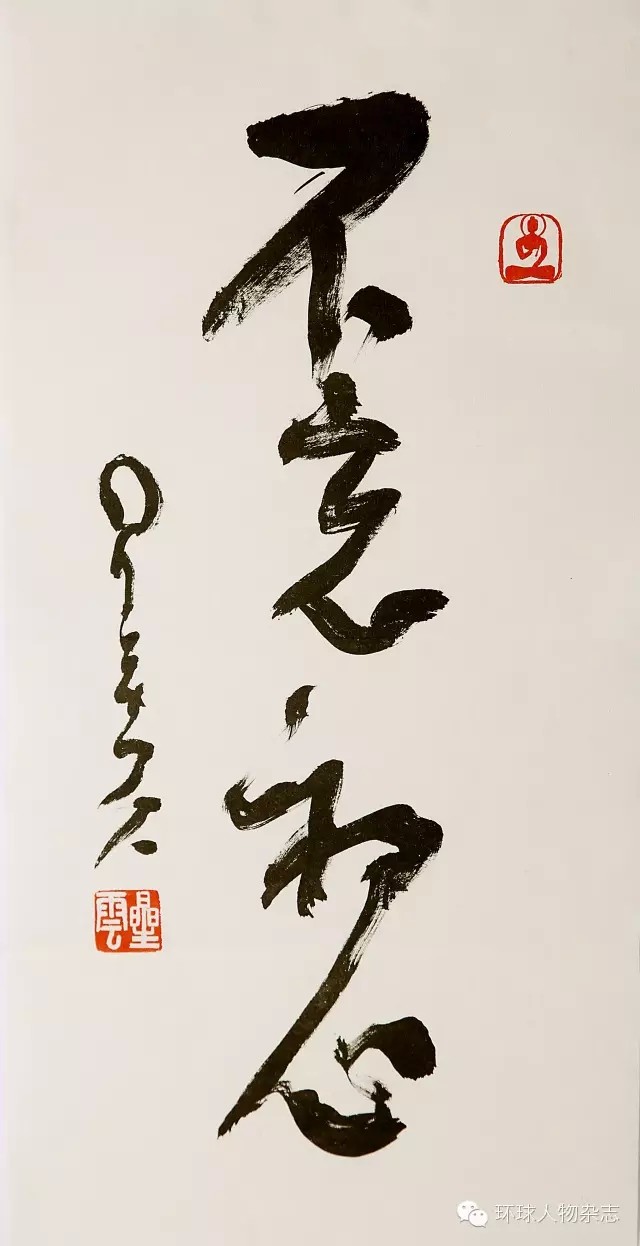 不忘初心
星雲
星雲
环球人物杂志